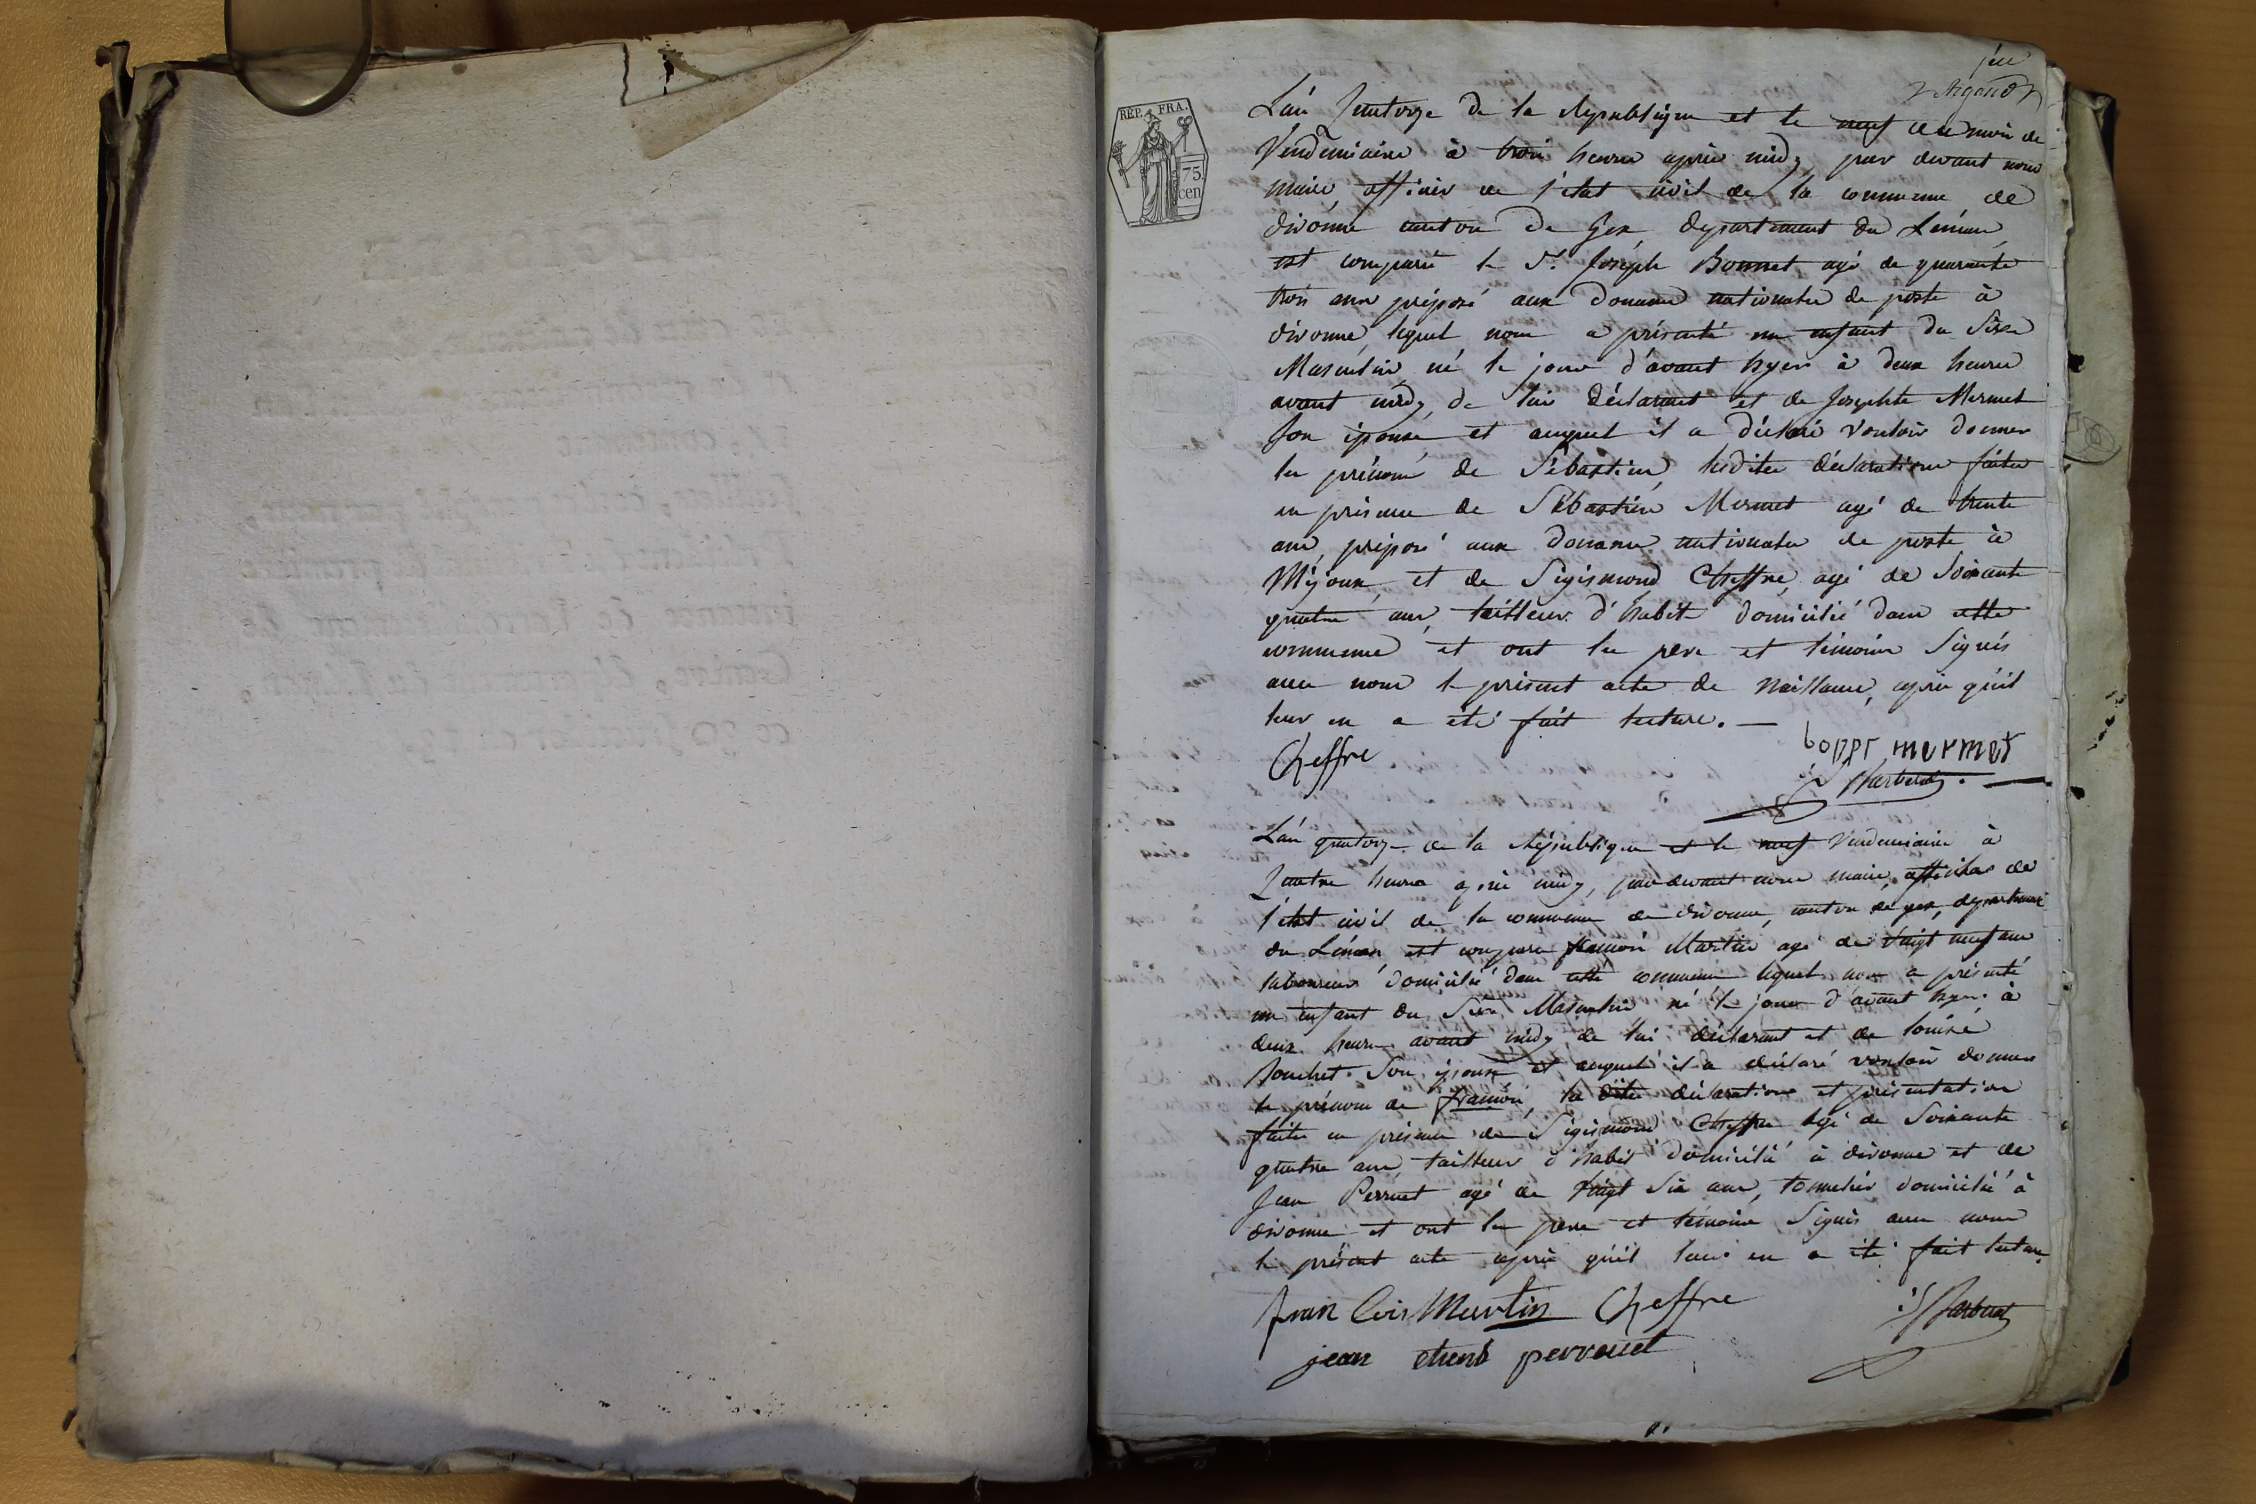 REP. FRA.
75
cen
L'an quatorze de la Republique et le neuf du mois de
Vendemiaire à trois heures après midy par devant nous
maire, officier de l'état civil de la commune de
divonne canton de Gex, departement du Léman,
est comparu le Sr. Joseph Bonnet agé de quarante
trois ans préposé aux Douanes nationales de poste à
divonne, lequel nous a présenté un enfant du Sexe
Masculin, né le jour d'avant hyer à deux heures
avant midy, de lui Déclarant et de Josephte Mermet
Son épouse et auquel il a déclaré vouloir donner
les prénoms de Sébastien, lesdites déclarations faites
en présence de Sébastien Mermet agé de trente
ans, préposé aux douanes nationales de poste à
Mijoux, et de Sigismond Cheffre, agé de Soixante
quatre ans, tailleur d'habit domicilié dans cette
commune et ont les pere et témoins Signés
avec nous le présent acte de Naissance, après qu'il
leur en a été fait lecture. —
Cheffre mermet
L'an quatorze de la République et le neuf Vendemiaire à
Quatre heures après midy, par devant nous maire, officier de
l'état civil de la commune de divonne, canton de gex, departement
du Léman est comparu françois Martin agé de Vingt neuf ans
laboureur domicilié dans cette commune lequel nous a présenté
un enfant du Sexe Masculin né le jour d'avant hyer à
deux heures avant midy de lui déclarant et de louise
Son épouse et auquel il a déclaré vouloir donner
le prénom de françois, les dites déclarations et présentation
faites en présence de Sigismond Cheffre agé de Soixante
quatre ans, tailleur d'habit domicilié à divonne et de
Jean Perruet agé de Vingt Six ans, tonnelier domicilié à
divonne et ont les pere et témoins Signés avec nous
le présent acte après qu'il leur en a été fait lecture.
fran Cois Martin Cheffre
jean perrouet